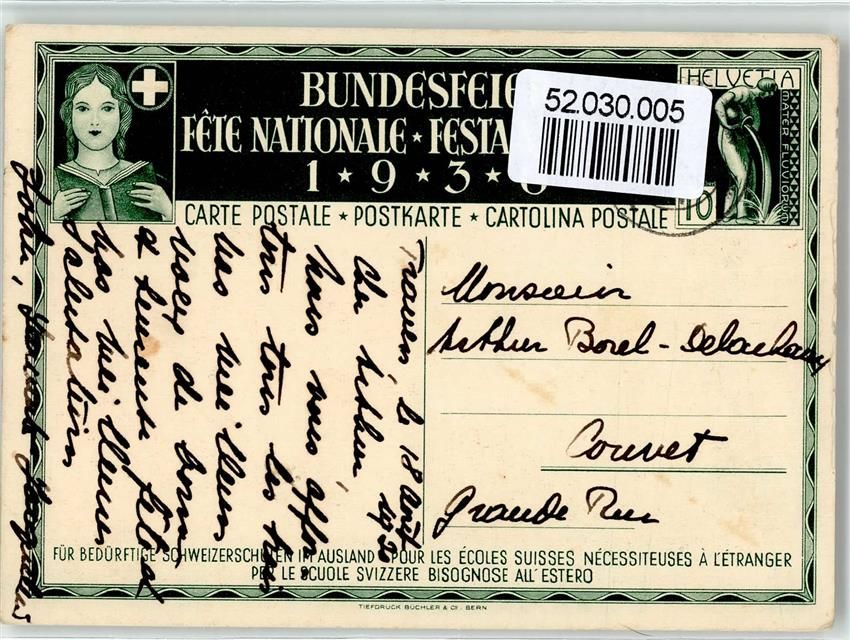 BUNDESFEIE
FÊTE NATIONALE ★ FESTA
1 ★ 9 ★ 3 ★
52.030.005
HELVETIA
MATER FLUVIORUM
10
CARTE POSTALE ★ POSTKARTE ★ CARTOLINA POSTALE
Monsieur
Arthur Borel-Delachaux
Couvet
Grande Rue
Travers le 18 Août
1936
Cher Arthur
Nous vous
tous tous les
les meilleurs
voeux de bonne
et heureuse fête et
nos meilleures
Salutations
John,
FÜR BEDÜRFTIGE SCHWEIZERSCHULEN IM AUSLAND POUR LES ÉCOLES SUISSES NÉCESSITEUSES À L'ÉTRANGER
PER LE SCUOLE SVIZZERE BISOGNOSE ALL'ESTERO
TIEFDRUCK BÜCHLER & CIE. BERN